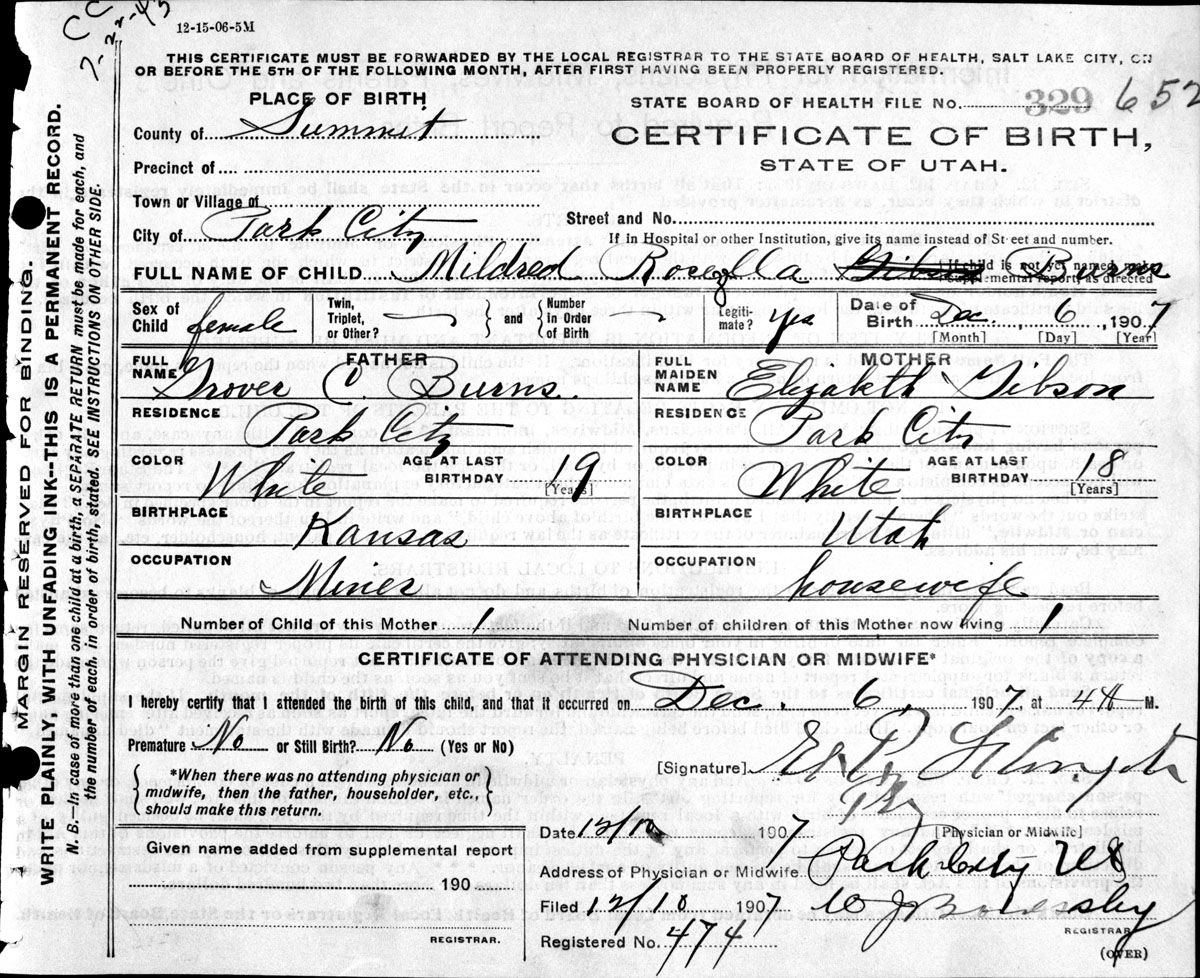 CC
7-22-43
12-15-06-5M
THIS CERTIFICATE MUST BE FORWARDED BY THE LOCAL REGISTRAR TO THE STATE BOARD OF HEALTH, SALT LAKE CITY, ON
OR BEFORE THE 5TH OF THE FOLLOWING MONTH, AFTER FIRST HAVING BEEN PROPERLY REGISTERED.
MARGIN RESERVED FOR BINDING.
WRITE PLAINLY, WITH UNFADING INK--THIS IS A PERMANENT RECORD.
N. B.—In case of more than one child at a birth, a SEPARATE RETURN must be made for each, and
the number of each, in order of birth, stated. SEE INSTRUCTIONS ON OTHER SIDE.
PLACE OF BIRTH
STATE BOARD OF HEALTH FILE No. 329 652
County of Summit
CERTIFICATE OF BIRTH,
Precinct of
STATE OF UTAH.
Town or Village of
Street and No.
City of Park City
If in Hospital or other Institution, give its name instead of Street and number.
FULL NAME OF CHILD Mildred Rosezella Burns
(If child is not yet named, make Supplemental report, as directed
Sex of Child female
Twin, Triplet, or Other? and Number in Order of Birth
Legitimate? yes
Date of Birth Dec. 6, 1907
[Month] [Day] [Year]
FATHER
MOTHER
FULL NAME Grover C. Burns.
FULL MAIDEN NAME Elizabeth Gibson
RESIDENCE Park City
RESIDENCE Park City
COLOR White AGE AT LAST BIRTHDAY 19 [Years]
COLOR White AGE AT LAST BIRTHDAY 18 [Years]
BIRTHPLACE Kansas
BIRTHPLACE Utah
OCCUPATION Miner
OCCUPATION housewife
Number of Child of this Mother 1 Number of children of this Mother now living 1
CERTIFICATE OF ATTENDING PHYSICIAN OR MIDWIFE*
I hereby certify that I attended the birth of this child, and that it occurred on Dec. 6, 1907, at 4 A M.
Premature No or Still Birth? No (Yes or No)
[Signature]
*When there was no attending physician or
midwife, then the father, householder, etc.,
should make this return.
Date 12/10 1907
[Physician or Midwife]
Given name added from supplemental report
Address of Physician or Midwife Park City
190
Filed 12/10 1907
REGISTRAR.
REGISTRAR
Registered No. 474
(OVER)